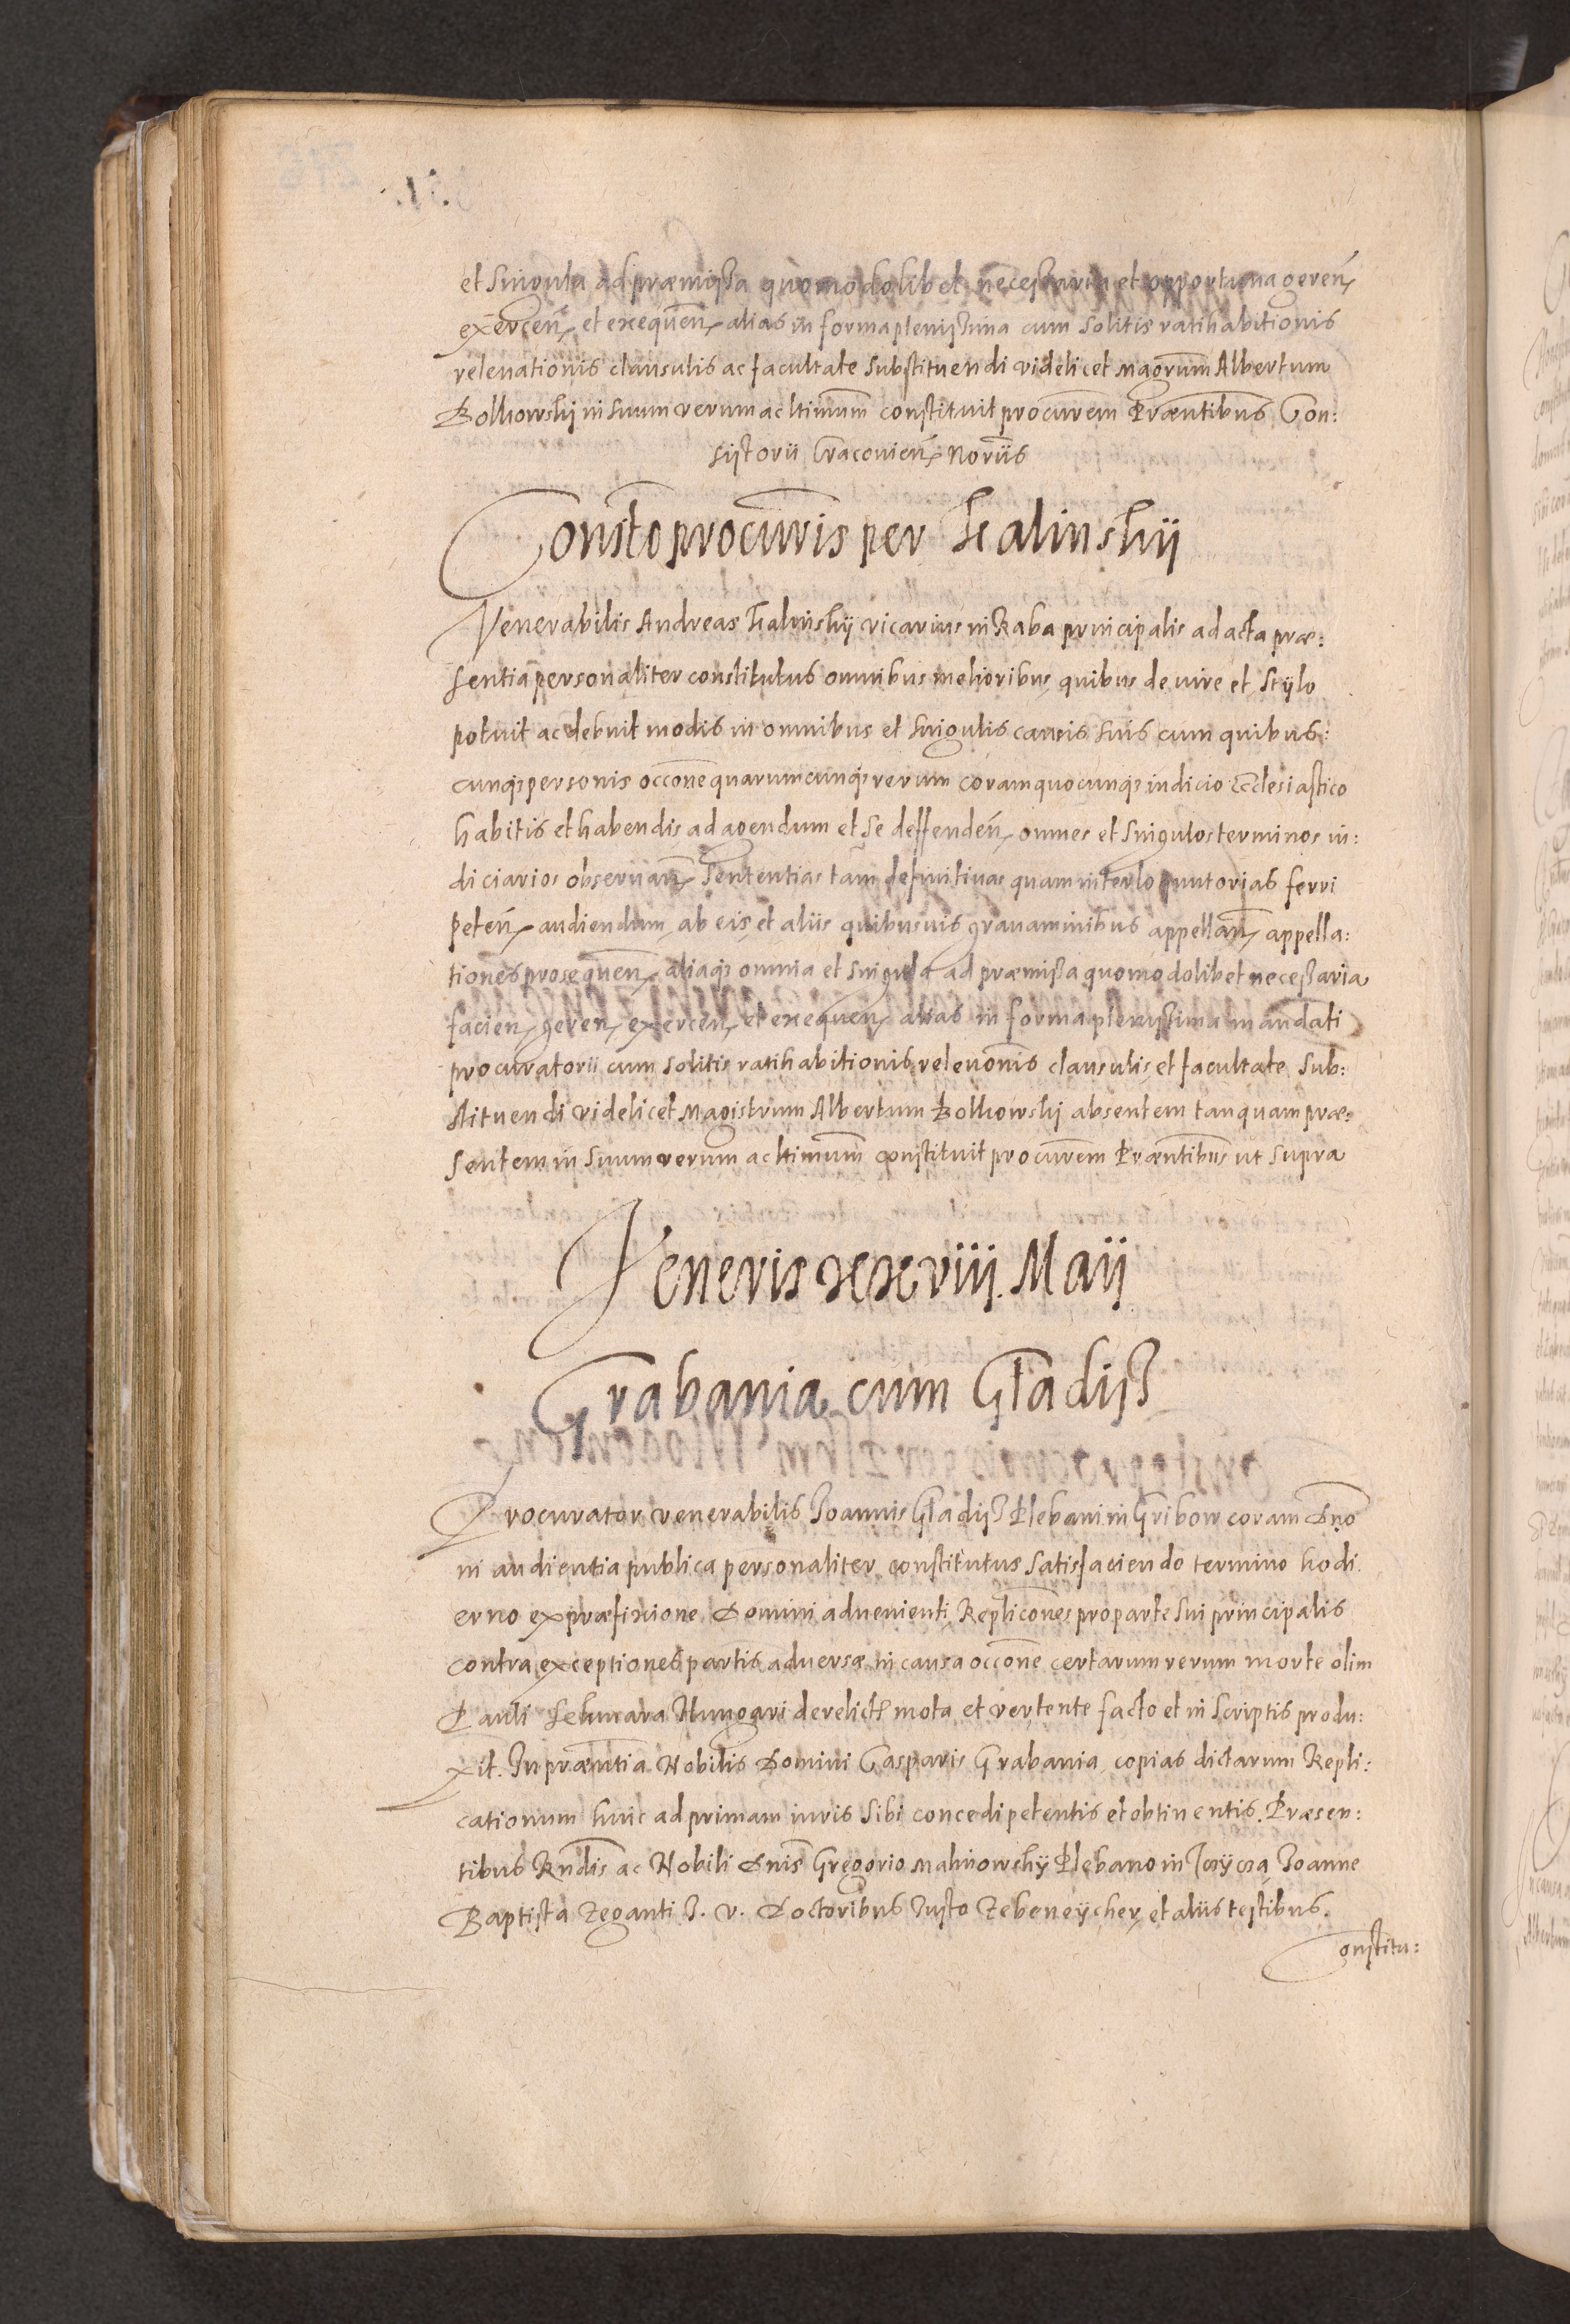 et singula ad præmissa quomodolibet necessaria et opportuna geren̄
exercen̄ et exequen̄ alias in forma plenissima cum solitis ratihabitionis
relevationis clausulis ac facultate substituendi videlicet Magrum Albertum
Bolhowskj in suum verum ac ltimum constituit procurem Præntibus Con:
sistorii Cracovien̄ Noriis
Constō procuris per Kalinskij
Venerabilis Andreas Kalinskij vicarius in Raba principalis ad acta præ:
sentia personaliter constitutus omnibus melioribus quibus de iure et stÿlo
potuit ac debuit modis in omnibus et singulis causis suis cum quibus:
cunq; personis occone quarumcunq; rerum coram quocunq; iudicio Ecclesiastico
habitis et habendis ad agendum et se deffenden̄ omnes et singulos terminos iu:
diciarios observan̄ sententias tam definitivas quam interloquutorias ferri
peten̄ audiendum ab eis et aliis quibusuis gravaminibus appellan̄ appella:
tiones prosequen̄ aliaq; omnia et singula ad præmissa quomodolibet necessaria
facien̄ geren̄ exercen̄ et exequen̄ alias in forma plenissima mandati
procuratorii cum solitis ratihabitionis relevonis clausulis et facultate sub:
stituendi videlicet Magistrum Albertum Bolhowskj absentem tanquam præ:
sentem in suum verum ac ltimum constituit procurem Præntibus ut supra
Veneris xxviij. Maij
Grabania cum Gładijß
Procurator venerabilis Joannis Gładijß Plebani in Gribow coram Dno
in audientia publica personaliter constitutus satisfaciendo termino hodi
erno ex præfixione Domini advenienti Replicones pro parte sui principalis
contra exceptiones partis adversæ in causa occone certarum rerum morte olim
Pauli Hungari derelict mota et vertente facto et in scriptis produ:
xit. In præntia Nobilis Domini Casparis Grabania copias dictarum Repli:
cationum huic ad primam iuris sibi concedi petentis et obtinentis. Præsen:
tibus Rndis ac Nobili Dnis Gregorio Malinowskÿ Plebano in Joanne
Baptista Zeganti J. V. Doctoribus Justo Zebeneÿcher et aliis testibus.
Constitu: